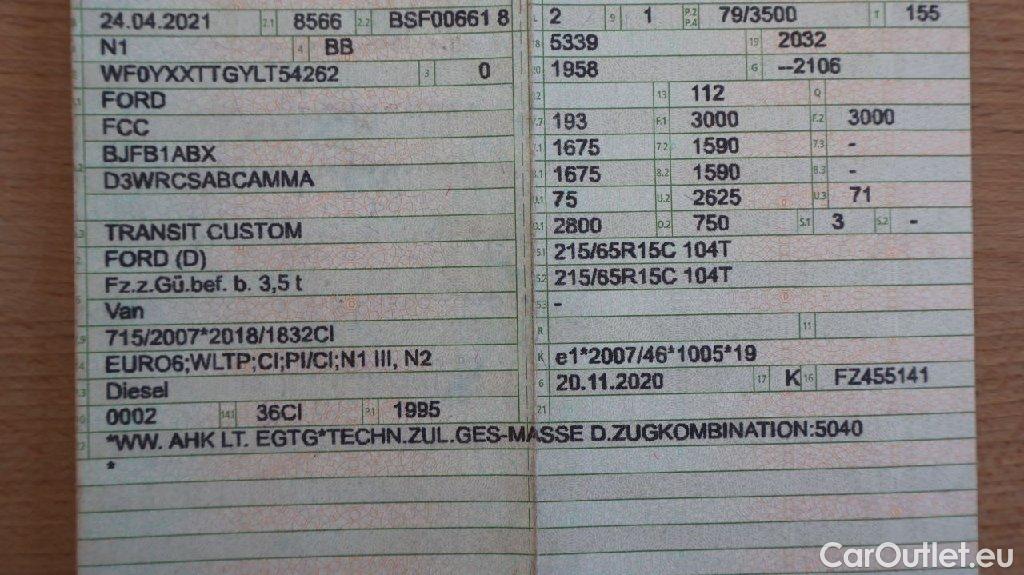 24.04.2021 2.1 8566 2.2 BSF00661 8
N1 4 BB
WF0YXXTTGYLT54262 3 0
FORD
FCC
BJFB1ABX
D3WRCSABCAMMA
TRANSIT CUSTOM
FORD (D)
Fz.z.Gü.bef. b. 3,5 t
Van
715/2007*2018/1832CI
EURO6;WLTP;CI;PI/CI;N1 III, N2
Diesel
0002 14.1 36CI P.1 1995
L 2 9 1 P.2 P.4 79/3500 T 155
18 5339 19 2032
20 1958 G --2106
12 13 112 Q
V.7 193 F.1 3000 F.2 3000
7.1 1675 7.2 1590 7.3 -
8.1 1675 8.2 1590 8.3 -
U.1 75 U.2 2625 U.3 71
O.1 2800 O.2 750 S.1 3 S.2 -
15.1 215/65R15C 104T
15.2 215/65R15C 104T
15.3 -
R 11
K e1*2007/46*1005*19
6 20.11.2020 17 K 16 FZ455141
21
*WW. AHK LT. EGTG*TECHN.ZUL.GES-MASSE D.ZUGKOMBINATION:5040
*
CarOutlet.eu